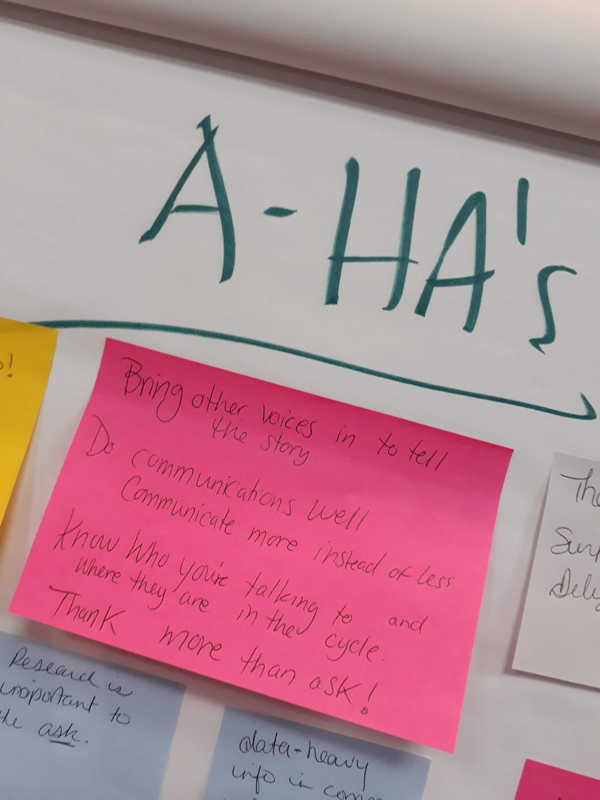 A-HA's
!
Bring other voices in to tell
the story
Do communications well
Communicate more instead of less
Know who you're talking to and
where they are in the cycle.
Thank more than ask!
The
Sur
Deli
Research is
important to
the ask.
data-heavy
info in